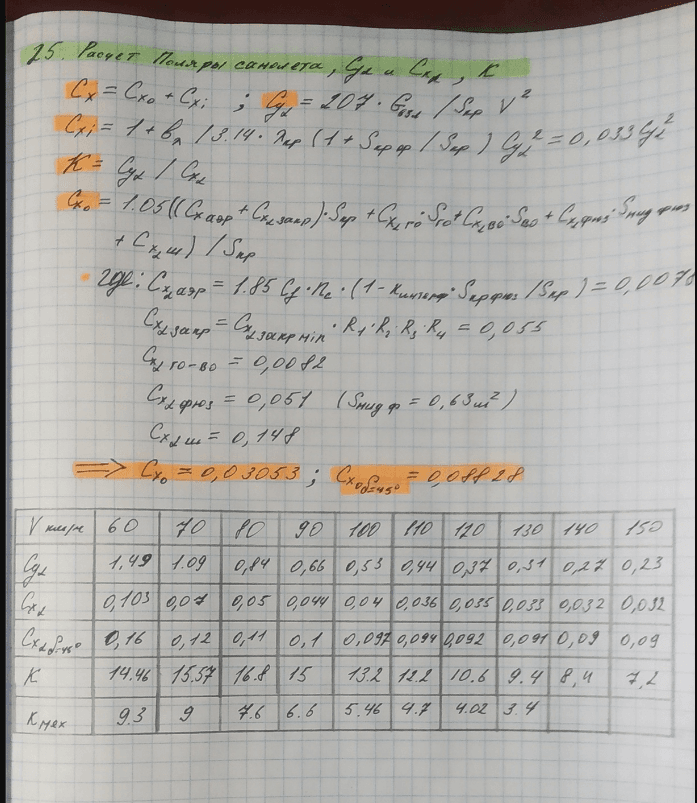 25. Расчет Поляры самолета, Cyα и Cxα, K
Cx = Cx₀ + Cxi ; Cyα = 207 · Gвзл / Sкр V²
Cxi = 1 + bл / 3.14 · λкр (1 + Sкр ф / Sкр) Cyα² = 0,033Cyα²
K = Cyα / Cxα
Cx₀ = 1.05((Cxαаэр + Cxαзакр)·Sкр + Cxαго·Sго + Cxαво·Sво + Cxαфюз·Sмид фюз
+ Cxαш) / Sкр
где: Cxαаэр = 1.85 Cf · nc · (1 - Kинтерф · Sкр фюз / Sкр) = 0,0078
Cxαзакр = Cxαзакр min · R₁ · R₂ · R₃ · R₄ = 0,055
Cxαго-во = 0,0082
Cxαфюз = 0,051 (Sмид ф = 0,63 м²)
Cxαш = 0,148
⟹ Cx₀ = 0,03053 ; Cx₀δ=45° = 0,08828
V км/ч 60 70 80 90 100 110 120 130 140 150
Cyα 1,49 1.09 0,84 0,66 0,53 0,44 0,37 0,31 0,27 0,23
Cxα 0,103 0,07 0,05 0,044 0,04 0,036 0,035 0,033 0,032 0,032
Cxαδ=45° 0,16 0,12 0,11 0,1 0,097 0,094 0,092 0,091 0,09 0,09
K 14.46 15.57 16.8 15 13.2 12.2 10.6 9.4 8,4 7,2
Kмех 9.3 9 7.6 6.6 5.46 4.7 4.02 3.4